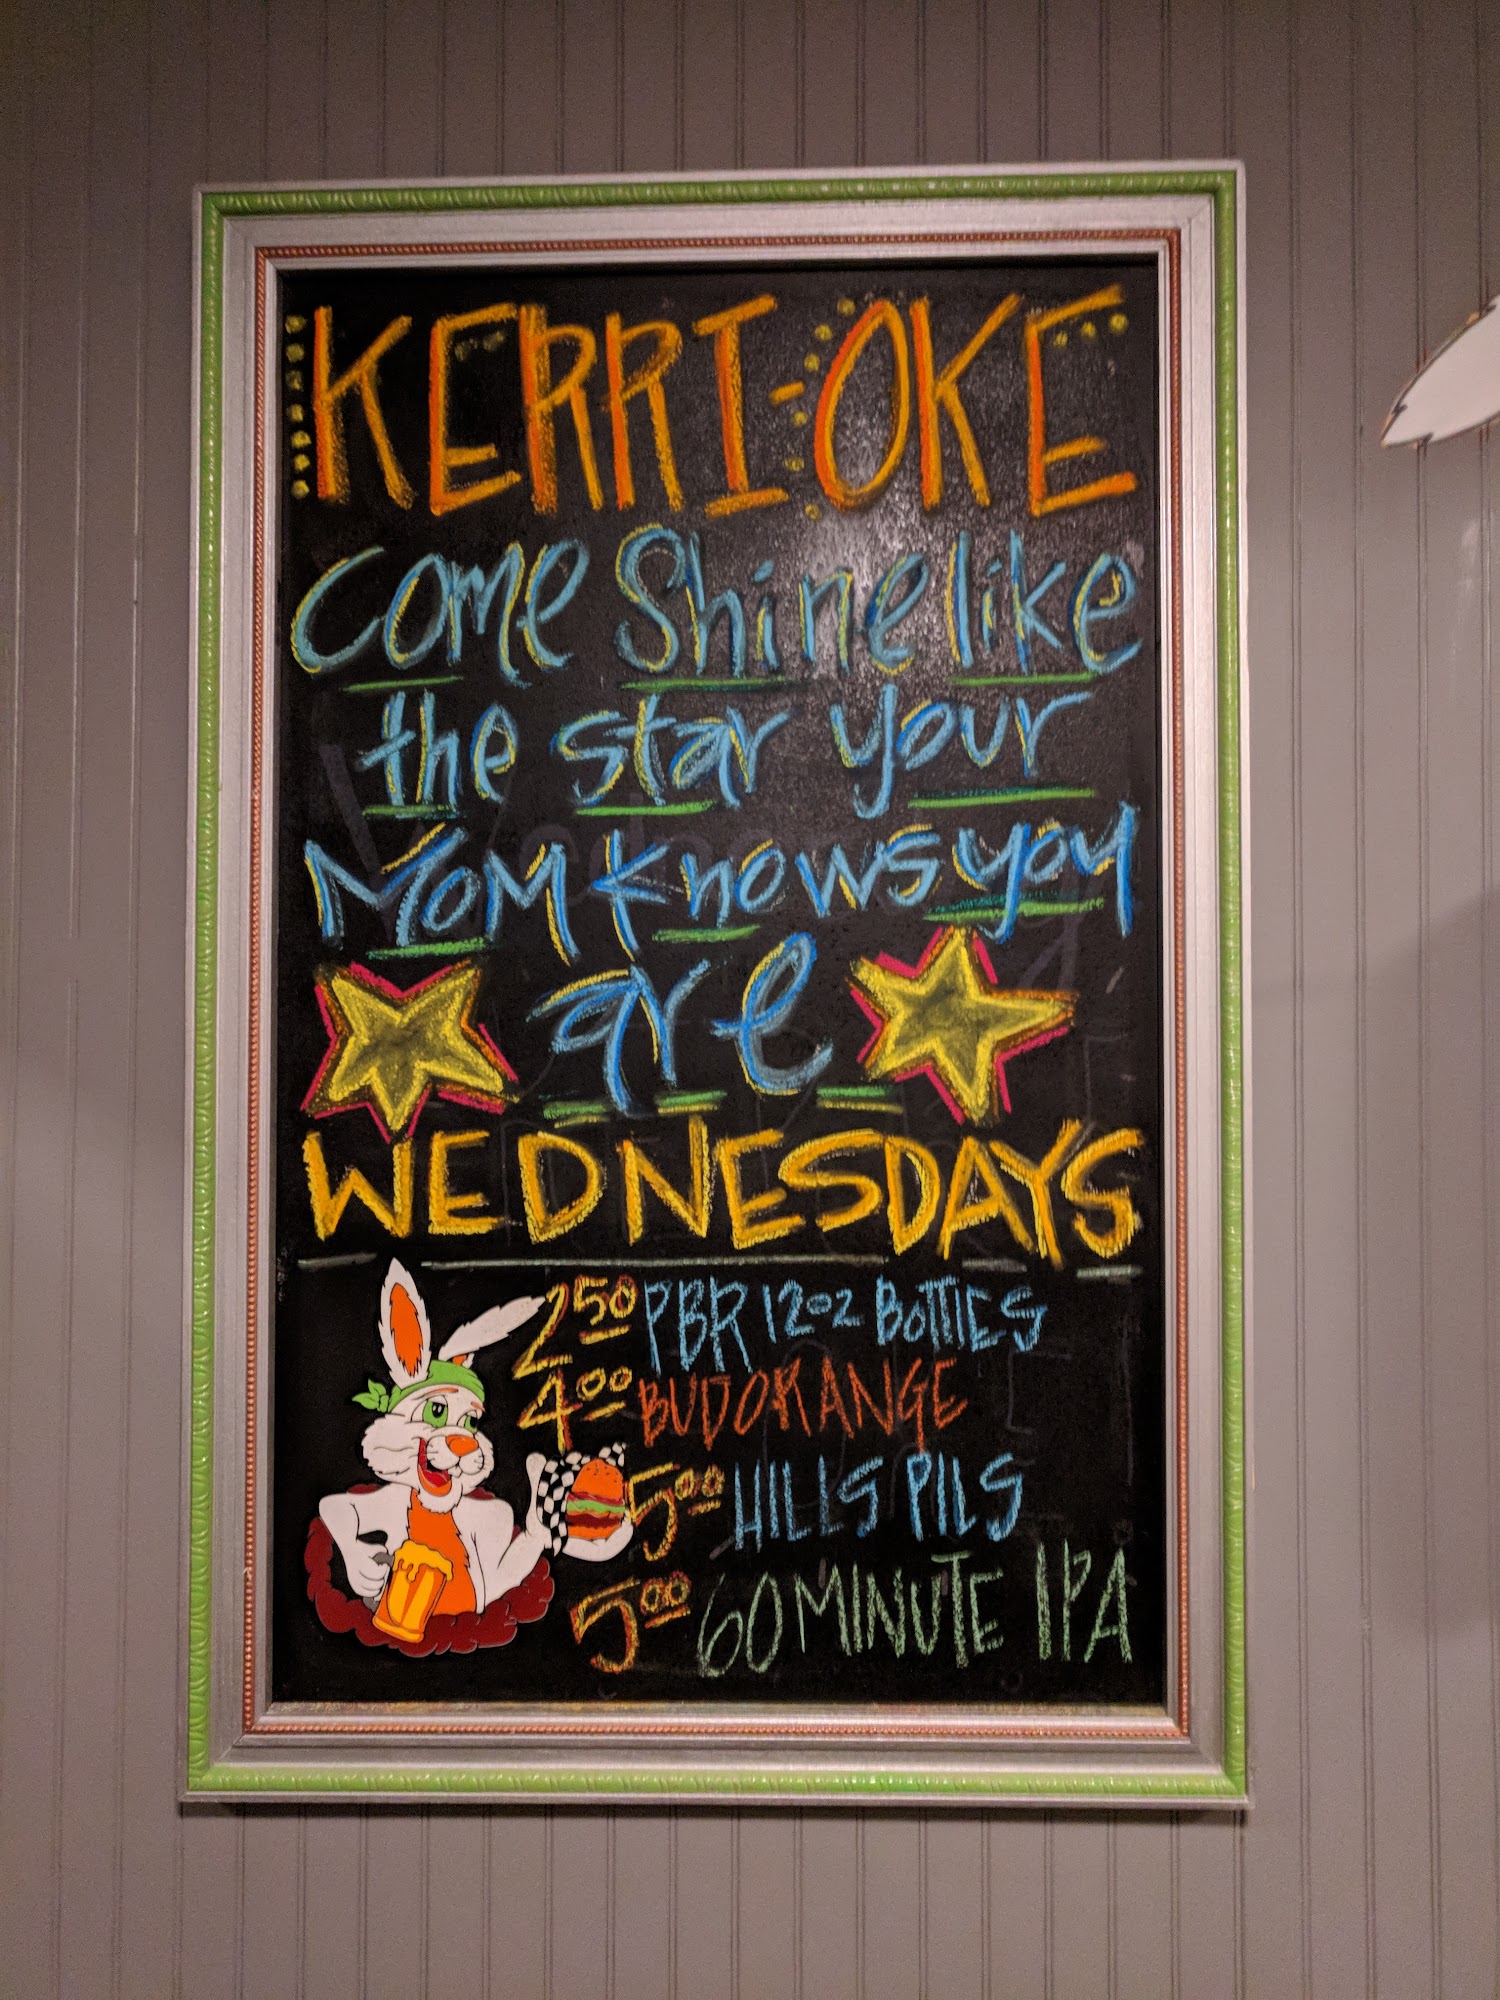 KERRI-OKE
Come Shine like
the star your
Mom knows you
are
WEDNESDAYS
2.50 PBR 12oz BOTTlES
4.00 BUD ORANGE
5.00 HILLS PILS
5.00 60 MINUTE IPA